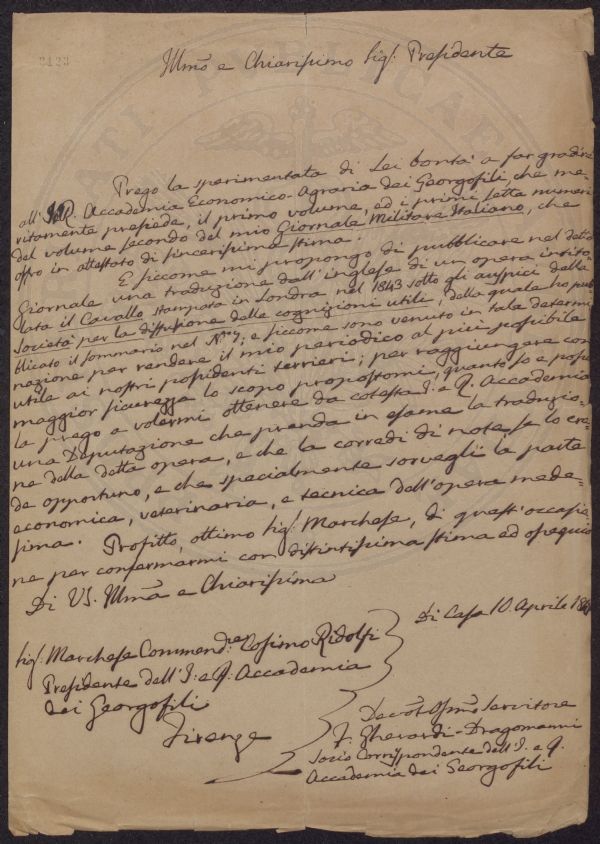 3423
Illmo e Chiarissimo Sigr. Presidente
Prego la sperimentata di Lei bontà a far gradire
all'I.R. Accademia Economico-Agraria dei Georgofili, che me-
ritamente presiede, il primo volume, ed i primi sette numeri
del volume secondo del mio Giornale Militare Italiano, che
offro in attestato di sincerissima stima.
E siccome mi propongo di pubblicare nel detto
Giornale una traduzione dall'inglese di un opera intito-
lata il Cavallo stampata in Londra nel 1843 sotto gli auspici della
Società per la diffusione delle cognizioni utili, della quale ho pub
blicato il sommario nel No. 7; e siccome sono venuto in tale determi
nazione per rendere il mio periodico al più possibile
utile ai nostri possidenti terrieri; per raggiungere con
maggior sicurezza lo scopo propostomi, quanto so e posso
la prego a volermi ottenere da cotesta I. e R. Accademia
una Deputazione che prenda in esame la traduzio-
ne della detta opera, e che la corredi di note se lo cre-
de opportuno, e che specialmente sorvegli la parte
economica, veterinaria, e tecnica dell'opera mede-
sima.
Profitto, ottimo Sigr. Marchese, di quest'occasio
ne per confermarmi con distintissima stima ed ossequio
Di VS. Illma e Chiarissima
Di Casa 10. Aprile
Sigr. Marchese Commendre Cosimo Ridolfi
Presidente dell'I. e R. Accademia
dei Georgofili
Firenze
Devot Osmo Servitore
F. Gherardi-Dragomanni
Socio Corrispondente dell'I. e R.
Accademia dei Georgofili